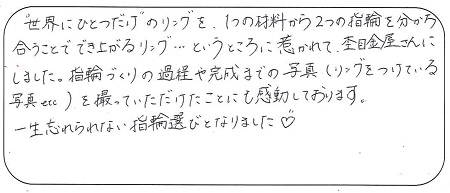 "世界にひとつだけ"のリングを、1つの材料から2つの指輪を分かち
合うことででき上がるリング…というところに惹かれて、杢目金屋さんに
しました。指輪づくりの過程や完成までの写真(リングをつけている
写真etc)を撮っていただけたことにも感動しております。
一生忘れられない指輪選びとなりました♡